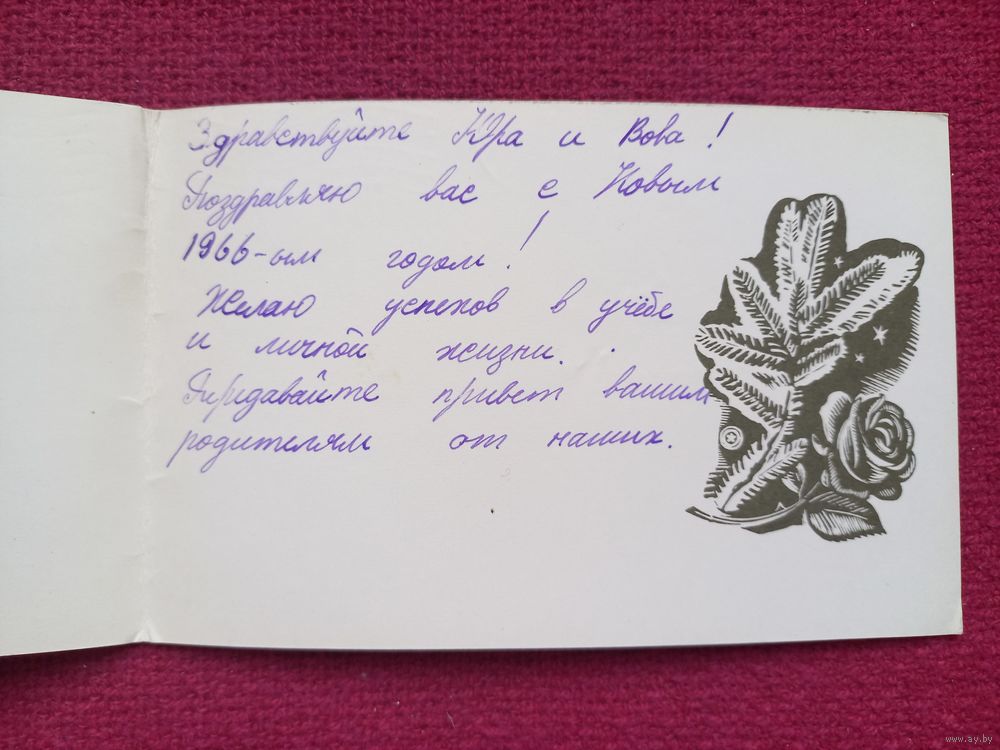 Здравствуйте Юра и Вова!
Поздравляю вас с Новым
1966-ым годом!
Желаю успехов в учёбе
и личной жизни.
Передавайте привет вашим
родителям от наших.
www.ay.by